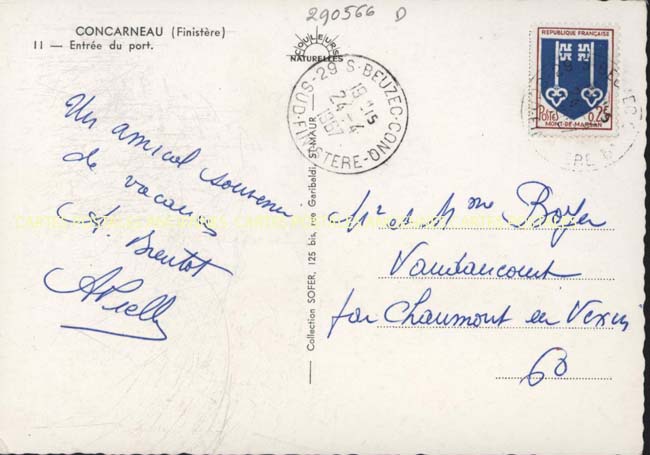 CONCARNEAU (Finistère)
11 — Entrée du port.
290566 D
COULEURS
NATURELLES
RÉPUBLIQUE FRANÇAISE
POSTES 0,25
MONT-DE-MARSAN
29 S-BEUZEC-CONQ
19 H15
24-4
1967
SUD-FINISTERE
Un amical souvenir
de vacances
A. Pielly
Collection SOFER, 125 bis, rue Garibaldi, ST-MAUR
Mr et Mme Boyer
Vaudancourt
par Chaumont en Vexin
60